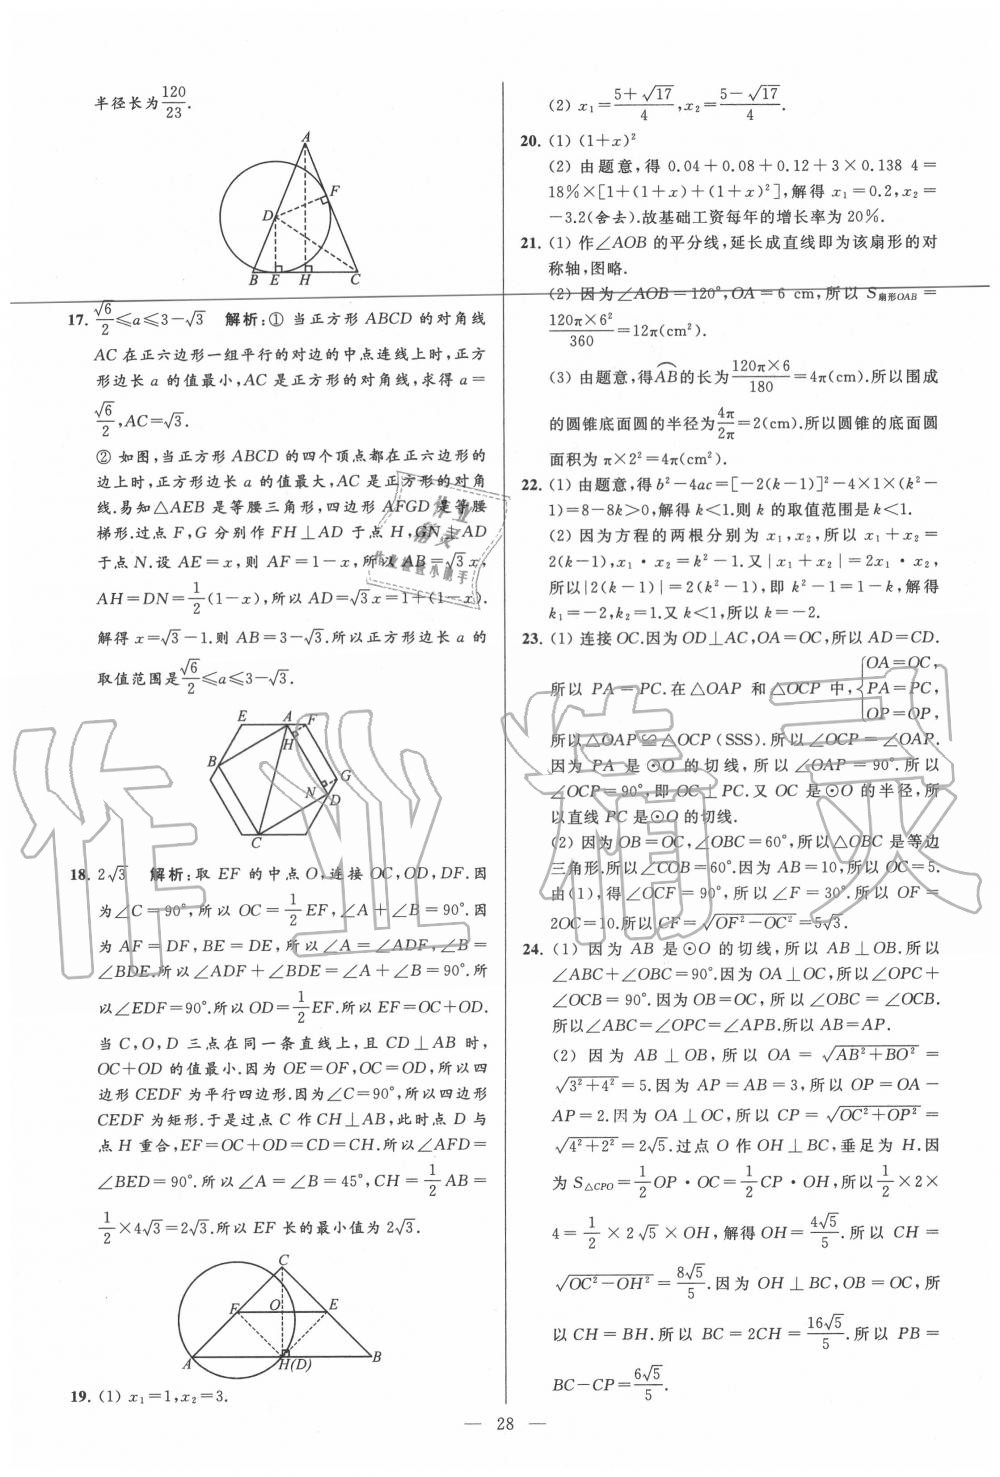 半径长为120/23.
A
F
D
B E H C
17. √6/2≤a≤3-√3 解析:① 当正方形 ABCD 的对角线
AC 在正六边形一组平行的对边的中点连线上时,正方
形边长 a 的值最小,AC 是正方形的对角线,求得 a=
√6/2,AC=√3.
② 如图,当正方形 ABCD 的四个顶点都在正六边形的
边上时,正方形边长 a 的值最大,AC 是正方形的对角
线.易知△AEB 是等腰三角形,四边形 AFGD 是等腰
梯形.过点 F,G 分别作 FH⊥AD 于点 H,GN⊥AD
于点 N.设 AE=x,则 AF=1-x,所以 AB=√3x,
AH=DN=1/2(1-x),所以 AD=√3x=1+(1-x).
解得 x=√3-1.则 AB=3-√3.所以正方形边长 a 的
取值范围是√6/2≤a≤3-√3.
E A F
H
B
G
N D
C
18. 2√3 解析:取 EF 的中点 O,连接 OC,OD,DF.因
为∠C=90°,所以 OC=1/2EF,∠A+∠B=90°.因
为 AF=DF,BE=DE,所以∠A=∠ADF,∠B=
∠BDE.所以∠ADF+∠BDE=∠A+∠B=90°.所
以∠EDF=90°.所以 OD=1/2EF.所以 EF=OC+OD.
当 C,O,D 三点在同一条直线上,且 CD⊥AB 时,
OC+OD 的值最小.因为 OE=OF,OC=OD,所以四
边形 CEDF 为平行四边形.因为∠C=90°,所以四边形
CEDF 为矩形.于是过点 C 作 CH⊥AB,此时点 D 与
点 H 重合,EF=OC+OD=CD=CH.所以∠AFD=
∠BED=90°.所以∠A=∠B=45°,CH=1/2AB=
1/2×4√3=2√3.所以 EF 长的最小值为 2√3.
C
F O E
A H(D) B
19. (1) x₁=1,x₂=3.
(2) x₁=(5+√17)/4,x₂=(5-√17)/4.
20. (1) (1+x)²
(2) 由题意,得 0.04+0.08+0.12+3×0.138 4=
18%×[1+(1+x)+(1+x)²],解得 x₁=0.2,x₂=
-3.2(舍去).故基础工资每年的增长率为 20%.
21. (1) 作∠AOB 的平分线,延长成直线即为该扇形的对
称轴,图略.
(2) 因为∠AOB=120°,OA=6 cm,所以 S扇形OAB=
120π×6²/360=12π(cm²).
(3) 由题意,得A͡B的长为120π×6/180=4π(cm).所以围成
的圆锥底面圆的半径为4π/2π=2(cm).所以圆锥的底面圆
面积为 π×2²=4π(cm²).
22. (1) 由题意,得 b²-4ac=[-2(k-1)]²-4×1×(k²-
1)=8-8k>0,解得 k<1.则 k 的取值范围是 k<1.
(2) 因为方程的两根分别为 x₁,x₂,所以 x₁+x₂=
2(k-1),x₁·x₂=k²-1.又|x₁+x₂|=2x₁·x₂,
所以|2(k-1)|=2(k²-1),即 k²-1=1-k,解得
k₁=-2,k₂=1.又 k<1,所以 k=-2.
23. (1) 连接 OC.因为 OD⊥AC,OA=OC,所以 AD=CD.
所以 PA=PC.在△OAP 和△OCP 中,{OA=OC, PA=PC, OP=OP,
所以△OAP≌△OCP (SSS).所以∠OCP=∠OAP.
因为 PA 是⊙O 的切线,所以∠OAP=90°.所以
∠OCP=90°,即 OC⊥PC.又 OC 是⊙O 的半径,所
以直线 PC 是⊙O 的切线.
(2) 因为 OB=OC,∠OBC=60°,所以△OBC 是等边
三角形.所以∠COB=60°.因为 AB=10,所以 OC=5.
由(1),得∠OCF=90°,所以∠F=30°.所以 OF=
2OC=10.所以 CF=√(OF²-OC²)=5√3.
24. (1) 因为 AB 是⊙O 的切线,所以 AB⊥OB.所以
∠ABC+∠OBC=90°.因为 OA⊥OC,所以∠OPC+
∠OCB=90°.因为 OB=OC,所以∠OBC=∠OCB.
所以∠ABC=∠OPC=∠APB.所以 AB=AP.
(2) 因为 AB⊥OB,所以 OA=√(AB²+BO²)=
√(3²+4²)=5.因为 AP=AB=3,所以 OP=OA-
AP=2.因为 OA⊥OC,所以 CP=√(OC²+OP²)=
√(4²+2²)=2√5.过点 O 作 OH⊥BC,垂足为 H.因
为 S△CPO=1/2OP·OC=1/2CP·OH,所以1/2×2×
4=1/2×2√5×OH,解得 OH=4√5/5.所以 CH=
√(OC²-OH²)=8√5/5.因为 OH⊥BC,OB=OC,所
以 CH=BH.所以 BC=2CH=16√5/5.所以 PB=
BC-CP=6√5/5.
— 28 —
作业精灵